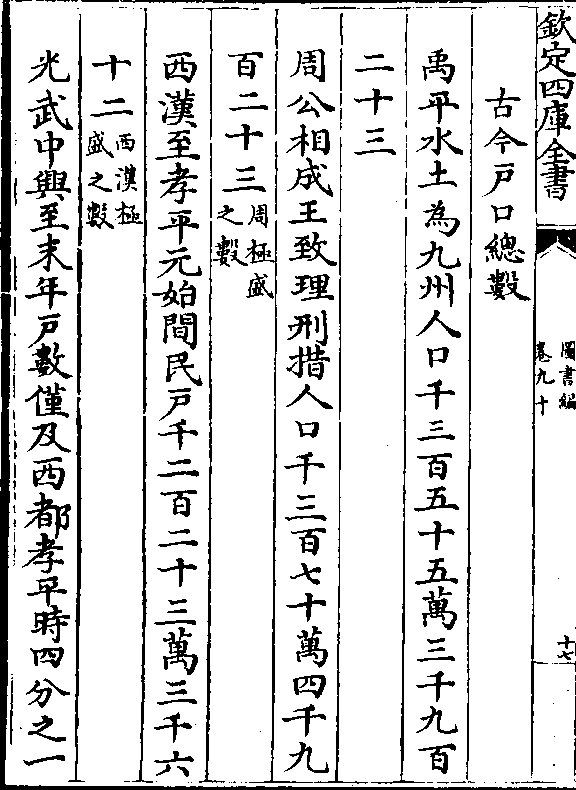 欽定四庫全書
圖書編
卷九十
十七
古今戸口總數
禹平水土為九州人口千三百五十五萬三千九百
二十三
周公相成王致理刑措人口千三百七十萬四千九
百二十三周極盛
之數
西漢至孝平元始間民戸千二百二十三萬三千六
十二西漢極
盛之數
光武中興至末年戸數僅及西都孝平時四分之一